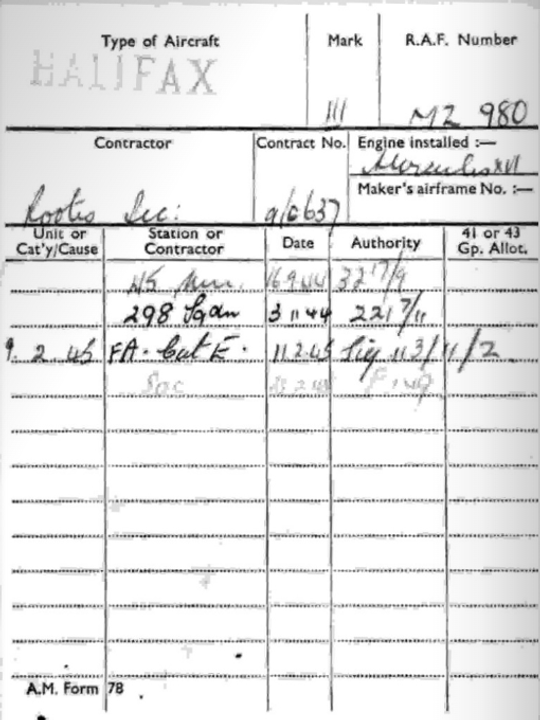 Type of Aircraft Mark R.A.F. Number
HALIFAX III MZ 980
Contractor Contract No. Engine installed :—
Hercules XVI
Maker's airframe No. :—
Rootes Sec:
Unit or Cat'y/Cause Station or Contractor Date Authority 41 or 43 Gp. Allot.
45 16 9 44 32 17/9
298 Sqdn 3 11 44 22 7/11
9. 2. 45 FA. Cat E. 11.2.45 Sig 113/11/2
Soc
A.M. Form 78